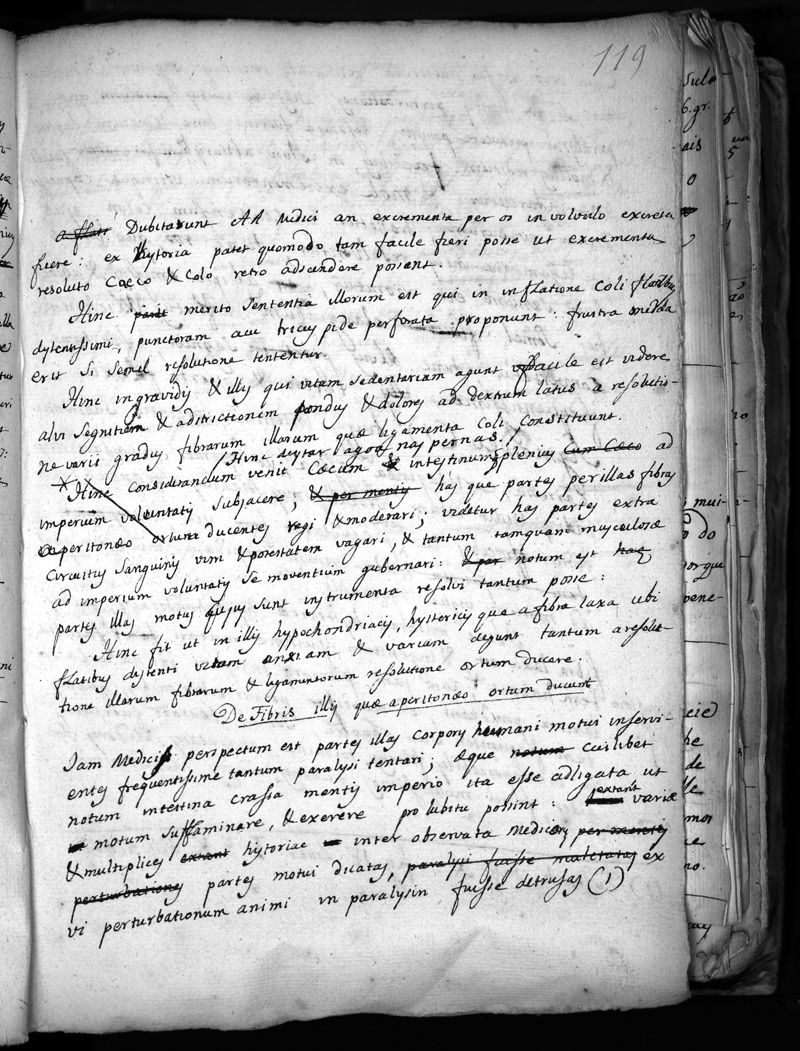 119
a flati Dubitarunt AA Medici an excrementa per os in volvulo excreta
fuere: ex hystoria patet quomodo tam facile fieri posse ut excrementa
resoluto Coeco & Colo retro adscendere possent.
Hinc merito sententia illorum est qui in inflatione Coli flatibus
dystentissimi, punctoram acu tricuspide perforata proponunt: frustra
erit si semel resolutione tententur.
Hinc in gravidis & illis qui vitam sedentariam agunt facile est videre
alvi segnitiem & adstrictionem pondus & dolores ad dextrum latus a resolutio-
ne varii gradus fibrarum illarum quae ligamenta Coli constituunt.
Hinc
Hinc considerandum venit Coecum & intestinum plenius Cum Coeco ad
imperium voluntatis subjacere, & per mentis has que partes per illas fibras
a peritonaeo ortum ducentes regi & moderari; videtur has partes extra
circuitus sanguinis vim & potestatem vagari, & tantum tamquam musculosae
ad imperium voluntatis se moventium gubernari: & par notum est hac
partes illas motus quejus sunt instrumenta resolvi tantum posse:
Hinc fit ut in illis hypochondriacis, hystericis que a fibra laxa ubi
flatibus dystenti vitam anxiam & variam degunt tantum a resolu-
tione illarum fibrarum & ligamentorum resolutione ortum ducere.
De Fibris illis quae a peritonaeo ortum ducunt
Iam Medicis perspectum est partes illas corporis humani motui inservi-
entes frequentissime tantum paralysi tentari; aeque notum cuilibet
notum intestina crassa mentis imperio ita esse adligata ut
motum sufflaminare, & exerere pro lubitu possint: extant variae
& multiplices extant hystoriae inter observata Medicorum per mentis
perturbationes partes motui dicatas, paralysi fuisse mulctatas ex
vi perturbationum animi in paralysin fuisse detrusas (1)